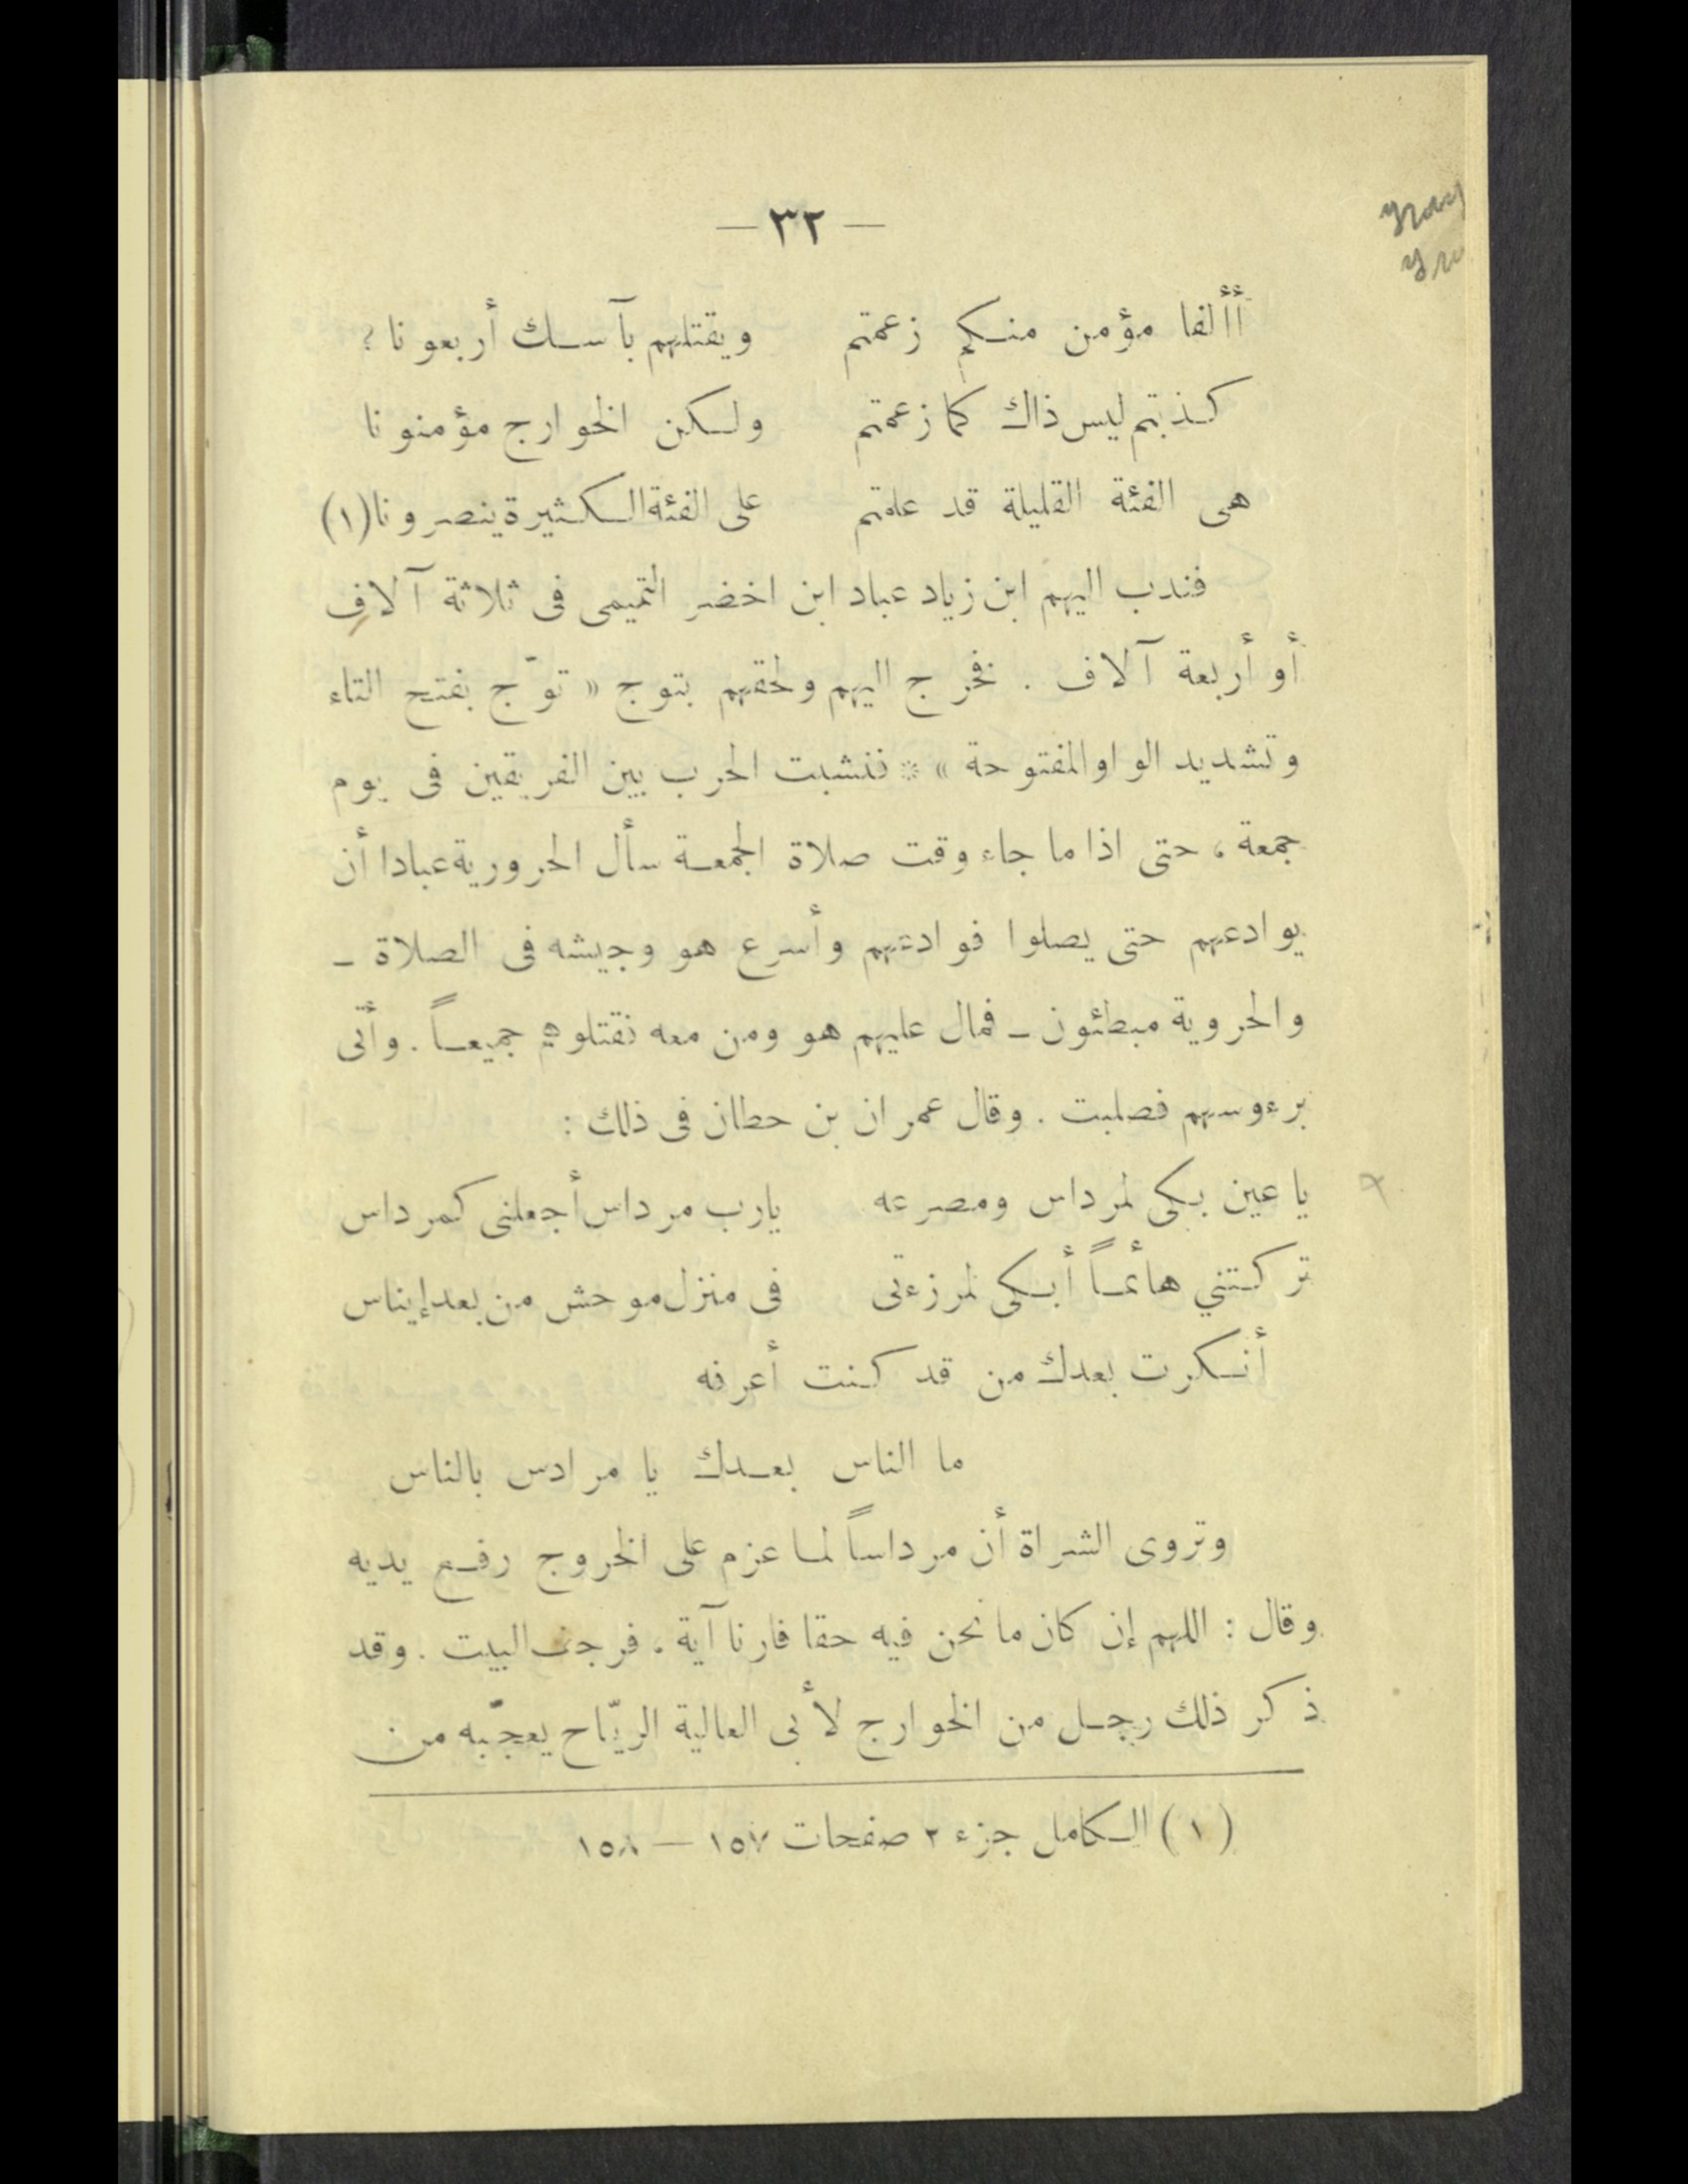 — ٣٢ —
أألفا مؤمن منكم زعمتم ويقتلهم بآسك أربعونا ؟
كذبتم ليس ذاك كما زعمتم ولكن الخوارج مؤمنونا
هى الفئة القليلة قد علمتم على الفئة الكثيرة ينصرونا (١)
فندب اليهم ابن زياد عباد ابن اخضر التميمى فى ثلاثة آلاف
أو أربعة آلاف . فخرج اليهم ولحقهم بتوج « توّج بفتح التاء
وتشديد الواو المفتوحة » * فنشبت الحرب بين الفريقين فى يوم
جمعة ، حتى اذا ما جاء وقت صلاة الجمعة سأل الحرورية عبادا أن
يوادعهم حتى يصلوا فوادعهم وأسرع هو وجيشه فى الصلاة –
والحروية مبطئون – فمال عليهم هو ومن معه فقتلوهم جميعاً . وأتى
برءوسهم فصلبت . وقال عمران بن حطان فى ذلك :
يا عين بكى لمرداس ومصرعه يارب مرداس أجعلنى كمرداس
تركتني هائماً أبكى لمرزءتى فى منزل موحش من بعد إيناس
أنكرت بعدك من قد كنت أعرفه
ما الناس بعدك يا مرادس بالناس
وتروى الشراة أن مرداساً لما عزم على الخروج رفع يديه
وقال : اللهم إن كان ما نحن فيه حقا فارنا آية ، فرجف البيت . وقد
ذكر ذلك رجل من الخوارج لأبى العالية الريّاح يعجّبه من
(١) الكامل جزء ٢ صفحات ١٥٧ — ١٥٨